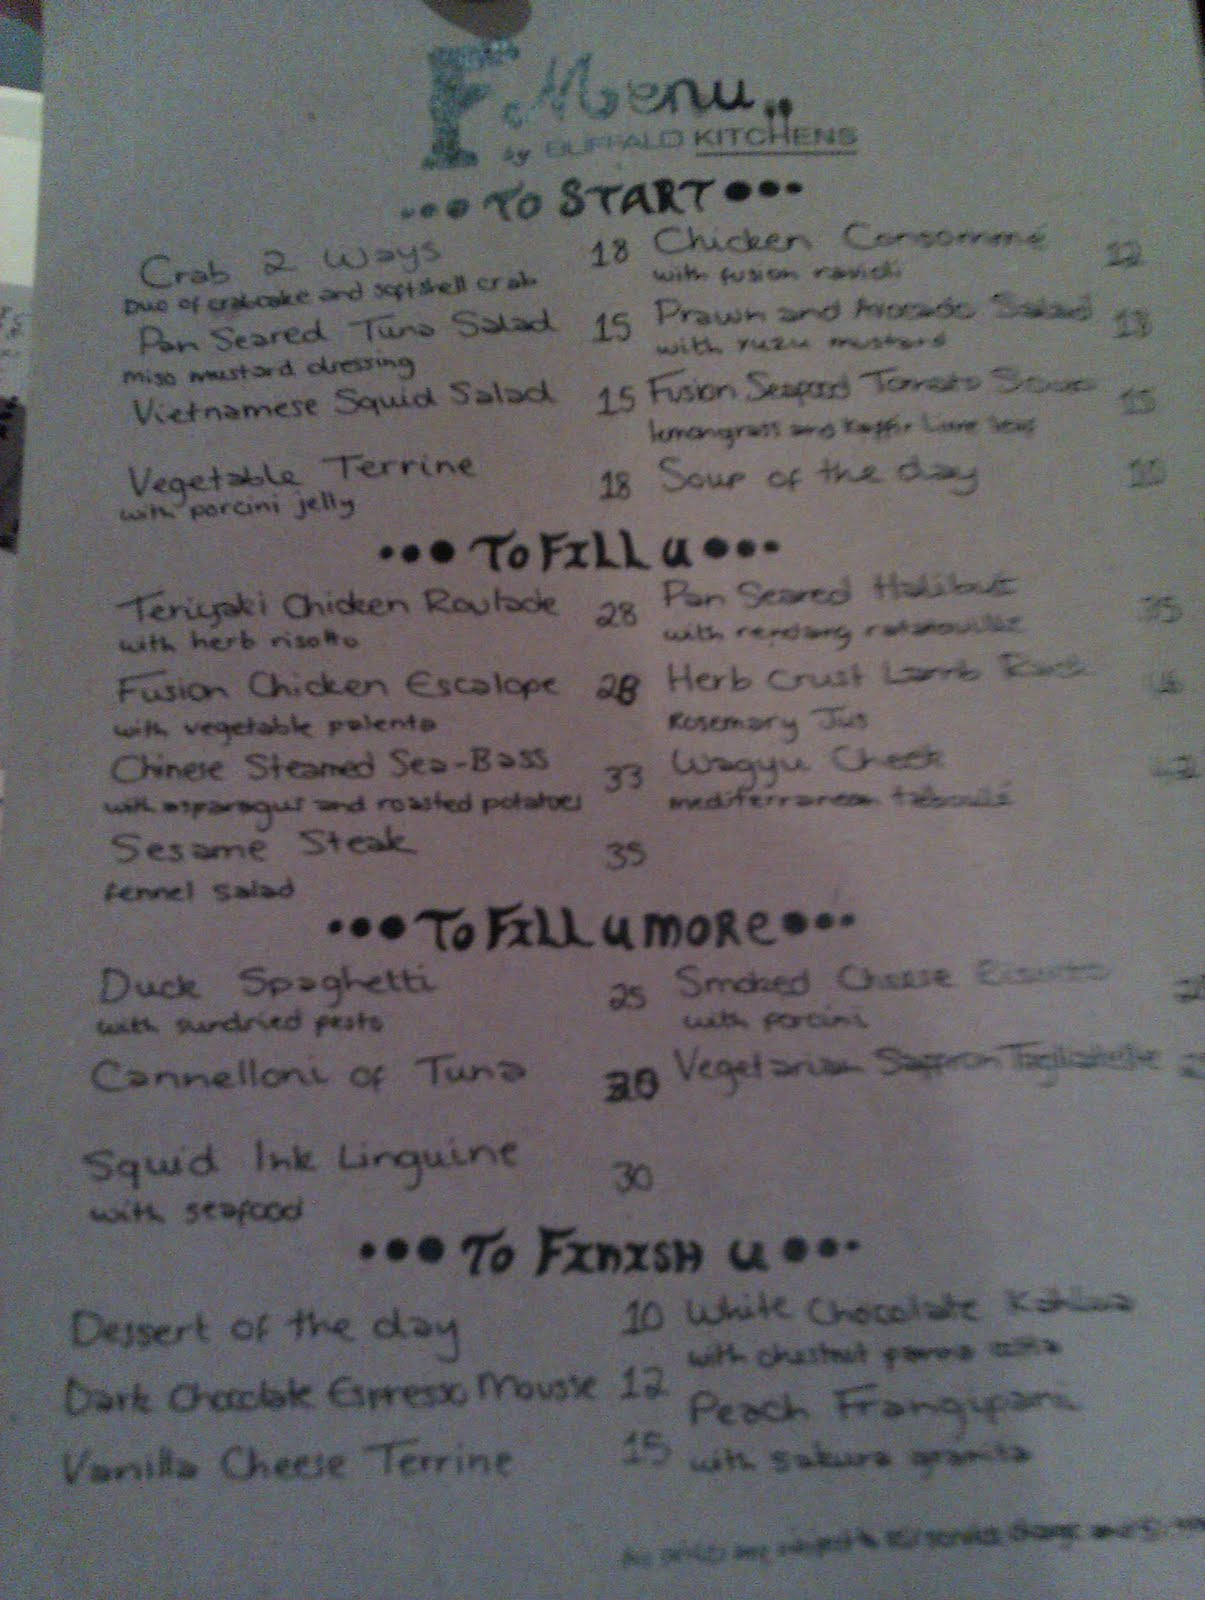 F. Menu
by BUFFALO KITCHENS
TO START
Crab 2 Ways 18
Duo of crabcake and softshell crab
Pan Seared Tuna Salad 15
miso mustard dressing
Vietnamese Squid Salad 15
Vegetable Terrine 18
with porcini jelly
Chicken Consommé 12
with fusion ravioli
Prawn and Avocado Salad 18
with yuzu mustard
Fusion Seafood Tomato Soup 15
lemongrass and Kaffir Lime
Soup of the day 10
TO FILL U
Teriyaki Chicken Roulade 28
with herb risotto
Fusion Chicken Escalope 28
with vegetable polenta
Chinese Steamed Sea-Bass 33
with asparagus and roasted potatoes
Sesame Steak 35
fennel salad
Pan Seared Halibut 35
with rendang ratatouille
Herb Crust Lamb Rack
Rosemary Jus
Wagyu Cheek 42
mediterranean taboulé
TO FILL U MORE
Duck Spaghetti 25
with sundried pesto
Cannelloni of Tuna
Squid Ink Linguine 30
with seafood
Smoked Cheese
with porcini
Vegetarian Saffron Tagliatelle
TO FINISH U
Dessert of the day 10
Dark Chocolate Espresso Mousse 12
Vanilla Cheese Terrine 15
White Chocolate Kahlua
with chestnut panna cotta
Peach Frangipani
with sakura granita
service charge and